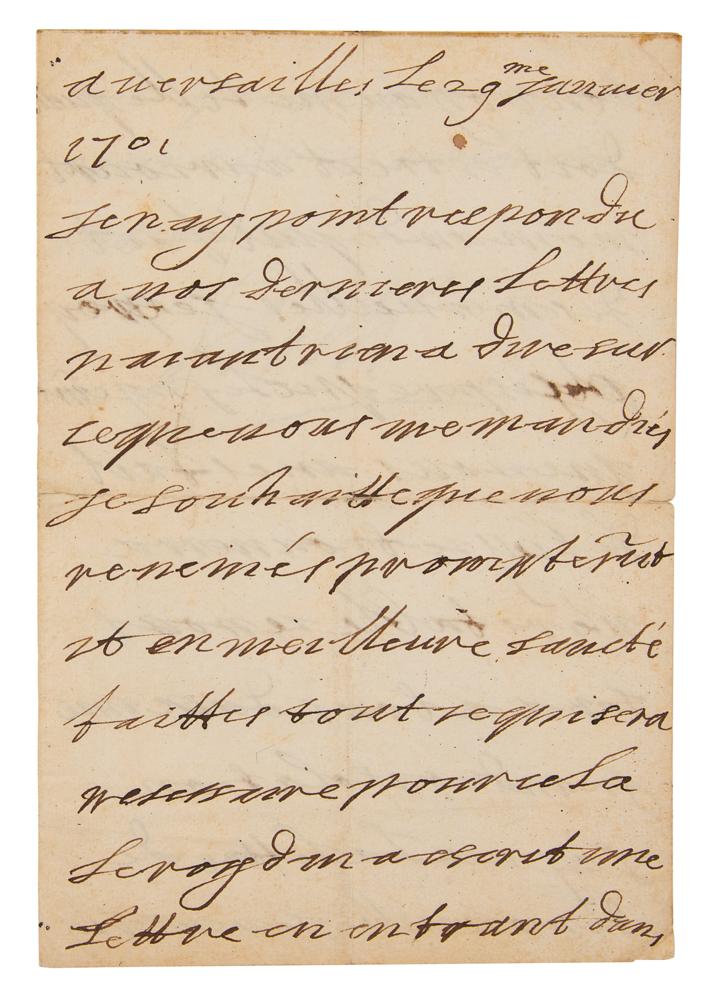 a uersailles le 29me Januier
1701
Je nay point respondu
a uos dernieres lettres
naiant rien a dire sur
ce que uous me mandiés
je souhaitte que uous
reueniés promptemt
et en meilleure santé
faittes tout ce qui sera
nescessaire pour cela
le roy dm a escrit une
lettre en entrant dans